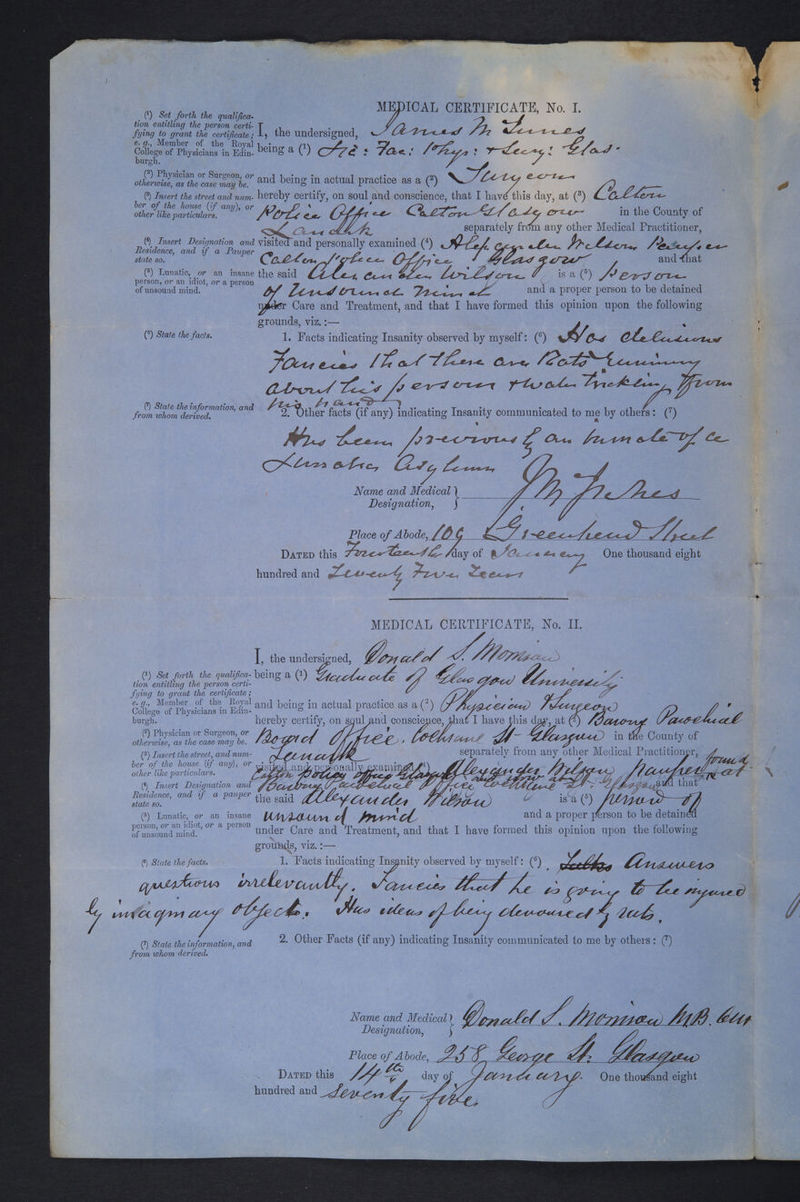 MEDICAL CERTIFICATE, No. I.
(¹) Set forth the qualifica-
tion entitling the person certi-
fying to grant the certificate;
e. g., Member of the Royal
College of Physicians in Edin-
burgh.
(²) Physician or Surgeon, or
otherwise, as the case may be.
(³) Insert the street and num-
ber of the house (if any), or
other like particulars.
(⁴) Insert Designation and
Residence, and if a Pauper
state so.
(⁵) Lunatic, or an insane
person, or an idiot, or a person
of unsound mind.
(⁶) State the facts.
(⁷) State the information, and
from whom derived.
I, the undersigned, James M
being a (¹) Lic: Fac: Phys: & Surg: Glas.
and being in actual practice as a (²) Surgeon
hereby certify, on soul and conscience, that I have this day, at (³) Calton
Police Office Calton Glasgow in the County of
Lanark separately from any other Medical Practitioner,
visited and personally examined (⁴) Alexander Wilson Pauper
Calton Police Office Glasgow and that
the said Alexander Wilson is a (⁵) person
of unsound mind and a proper person to be detained
under Care and Treatment, and that I have formed this opinion upon the following
grounds, viz.:—
1. Facts indicating Insanity observed by myself: (⁶) Has delusions
Fancies that there are Rats running
about his person & water trickling from
his hand
2. Other facts (if any) indicating Insanity communicated to me by others: (⁷)
Has been previously an inmate of a
Lunatic Asylum
Name and Medical
Designation,
Place of Abode, 109 Greenhead Street
DATED this Fourteenth day of January One thousand eight
hundred and Seventy Five Years
MEDICAL CERTIFICATE, No. II.
(¹) Set forth the qualifica-
tion entitling the person certi-
fying to grant the certificate;
e. g., Member of the Royal
College of Physicians in Edin-
burgh.
(²) Physician or Surgeon, or
otherwise, as the case may be.
(³) Insert the street, and num-
ber of the house (if any), or
other like particulars.
(⁴) Insert Designation and
Residence, and if a pauper
state so.
(⁵) Lunatic, or an insane
person, or an idiot, or a person
of unsound mind.
(⁶) State the facts.
(⁷) State the information, and
from whom derived.
I, the undersigned, Donald S. Morrison
being a (¹) Graduate of Glasgow University
and being in actual practice as a (²) Physician & Surgeon
hereby certify, on soul and conscience, that I have this day, at (³) Barony Parochial
Board Office, Cochrane St Glasgow in the County of
Lanark separately from any other Medical Practitioner,
visited and personally examined (⁴) Alexander Wilson Pauper found at
Calton Police Office Glasgow and now at
Barony Parochial Office Cochrane St. Glasgow and that
the said Alexander Wilson is a (⁵) person of
unsound mind and a proper person to be detained
under Care and Treatment, and that I have formed this opinion upon the following
grounds, viz.:—
1. Facts indicating Insanity observed by myself: (⁶) Talks Answers
questions irrelevantly. Fancies that he is going to be injured
by imaginary objects. Has ideas of being devoured by rats.
2. Other Facts (if any) indicating Insanity communicated to me by others: (⁷)
Name and Medical
Designation,
Donald S. Morrison M.B. C.M
Place of Abode, 258 George St. Glasgow
DATED this 14th day of January. One thousand eight
hundred and Seventy five.